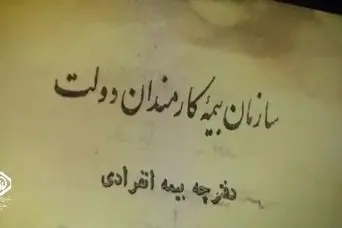 سازمان بیمهٔ کارمندان دولت
دفترچه بیمه انفرادی